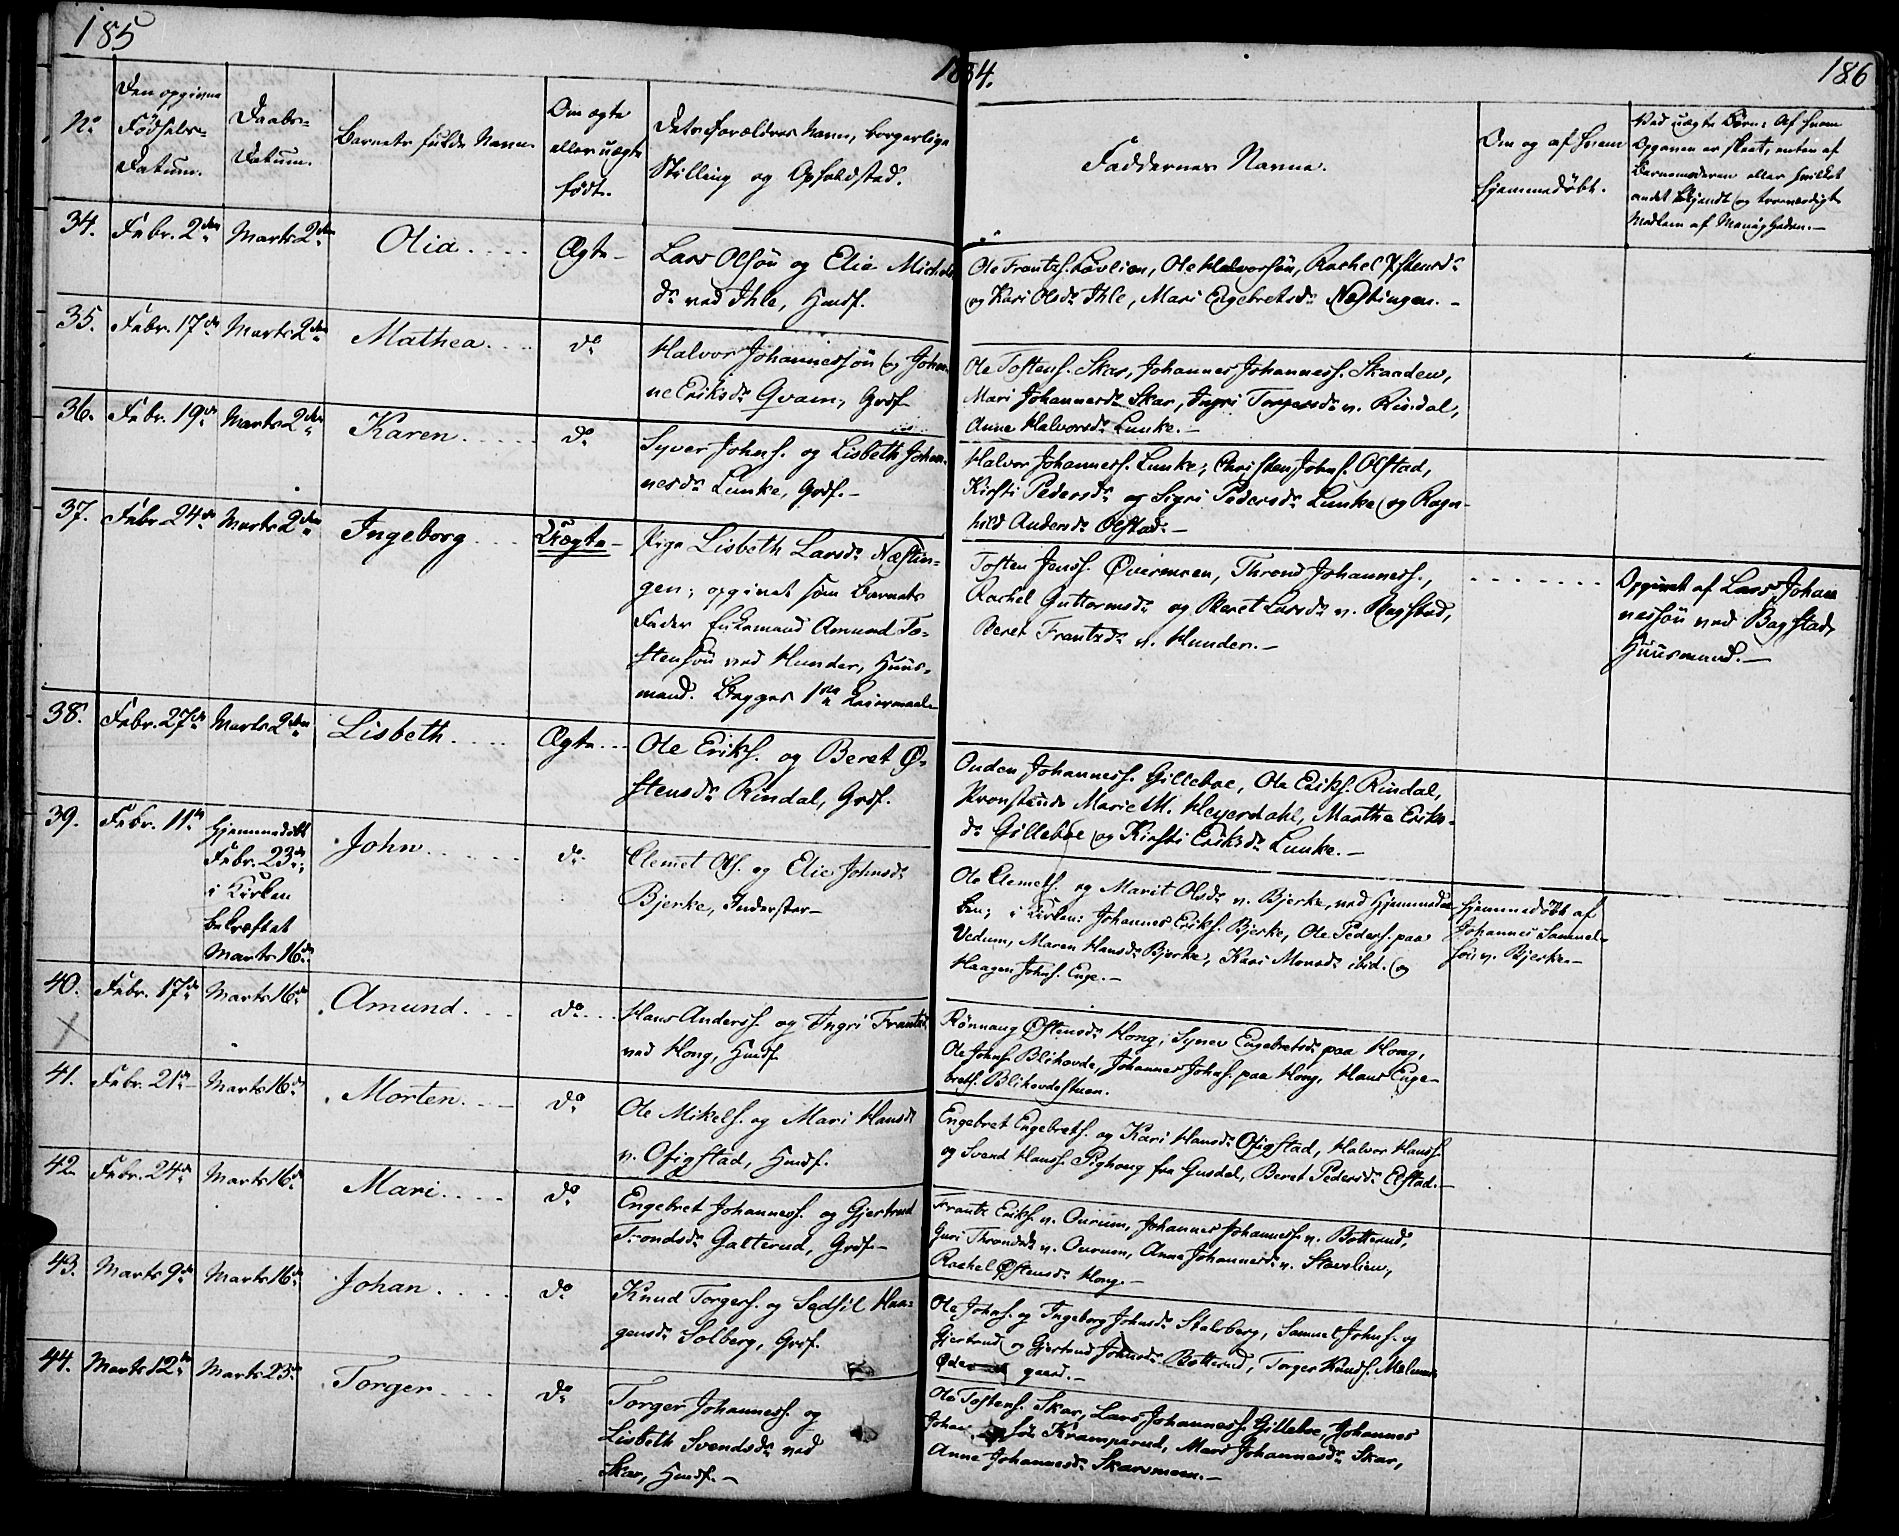 185
1834.
186
No
Den opgivne
Fødsels-
Datum.
Daabs-
Datum.
Barnets fulde Navn
Om ægte
eller uægte
født.
Dets Forældres Navn, borgerlige
Stilling og Opholdssted.
Faddernes Navne.
Om og af hvem
hjemmedøbt.
Ved uægte Børn: Af hvem
Opgaven er skeet, enten af
Barnemoderen eller hvilket
andet bekjendt og troværdigt
Medlem af Menigheden.-
34. Febr. 2den Marts 2den Olia.... Ægte-
Lars Olsøn og Elie Michels
dr ved Ihle, Hmdf.
Ole Frantzs. Løvlien, Ole Halvorsøn, Rachel Østensdr
og Kari Olsdr Ihle, Mari Engebretsdr Næstingen.-
35. Febr. 17de Marts 2den Mathea.... do
Halvor Johannessøn og Johan-
ne Eriksdr Qvam, Grdf.
Ole Tostens. Skar, Johannes Johanness. Skaaden,
Mari Johannesdr Skar, Ingri Torgersdr v. Rindal,
Anne Halvorsdr Lunke.-
36. Febr. 19de Marts 2den Karen..... do
Syver Johns. og Lisbeth Johan-
nesdr Lunke, Grdf.-
Halvor Johanness. Lunke, Christen Johns. Olstad,
Kirsti Pedersdr og Sigri Pedersdr Lunke og Ragn-
hild Andersdr Olstad.-
37. Febr. 24de Marts 2den Ingeborg... Uægte-
Pige Lisbeth Larsdr Næstin-
gen; opgivet som Barnets
Fader Enkemand Amund To-
stensøn ved Hunder, Huus-
mand. Begges 1ste Leiermaal.
Tosten Jenss. Øvermoen, Thrond Johanness.,
Rachel Guttormsdr og Beret Larsdr v. Bagstad,
Beret Frantzdr v. Hunder.-
Opgivet af Lars Johan
nessøn ved Bagstad,
Huusmand.-
38. Febr. 27de Marts 2den Lisbeth..... Ægte...
Ole Eriks. og Beret Ø-
stensdr Rindal, Grdf.
Ouden Johanness. Gilleboe, Ole Eriks. Rindal,
Marie M. Heyerdahl, Marthe Eriks-
dr Gilleboe og Kirsti Eriksdr Lunke.-
39. Febr. 11te Hjemmedøbt
Febr. 23de,
i Kirken
bekræftet
Marts 16de
John...... do
Clemet Ols. og Elie Johnsdr
Bjerke, Inderster-
Ole Clemets. og Marit Olsdr v. Bjerke, ved Hjemmedaa-
ben; i Kirken: Johannes Eriks. Bjerke, Ole Peders. paa
Vedum, Maren Hansdr Bjerke, Kari Monsdr ibid. og
Haagen Johns. Enge.-
Hjemmedøbt af
Johannes Samuel-
søn v. Bjerke.-
40. Febr. 17de Marts 16de Amund.... do...
Hans Anderss. og Ingri Frantzdr
ved Hong, Hmdf.
Rønnaug Østensdr Hong, Synev Engebretsdr paa Hong,
Ole Johns. Blihovde, Johannes Johns. paa Hong, Hans Enge-
brets. Blihovdestuen.
41. Febr. 21de- Marts 16de Morten.... do
Ole Mikels. og Mari Hansdr
v. Ofigstad, Hmdf.
Engebret Engebrets. og Kari Hansdr Ofigstad, Halvor Hanss.
og Svend Hanss. Pighoug fra Gusdal, Beret Pedersdr Elstad.-
42. Febr. 24de Marts 16de Mari.... do
Engebret Johanness. og Gjertrud
Trondsdr Galterud, Grdf.-
Frantz Eriks. v. Ourum, Johannes Johanness. v. Botterud,
Guri Throndsdr v. Ourum, Anne Johannesdr v. Stavslien,
Rachel Østensdr Hong.-
43. Marts 9de Marts 16de Johan.... do
Knud Torgers. og Sedsil Haa-
gensdr Solberg, Grdf.
Ole Johns. og Ingeborg Johnsdr Stalsberg, Samuel Johns. og
Gjertrud og Gjertrud Johnsdr Botterud, Torger Knuds. Melum
Øde gaard.-
44. Marts 12te Marts 23de Torger.... do
Torger Johanness. og
Lisbeth Svendsdr ved
Skar, Hmdf.-
Ole Tostens. Skar, Lars Johanness. Gilleboe, Johannes
Johannessøn Kramperud, Mari Johannesdr Skar,
Anne Johannesdr Skarsmoen.-